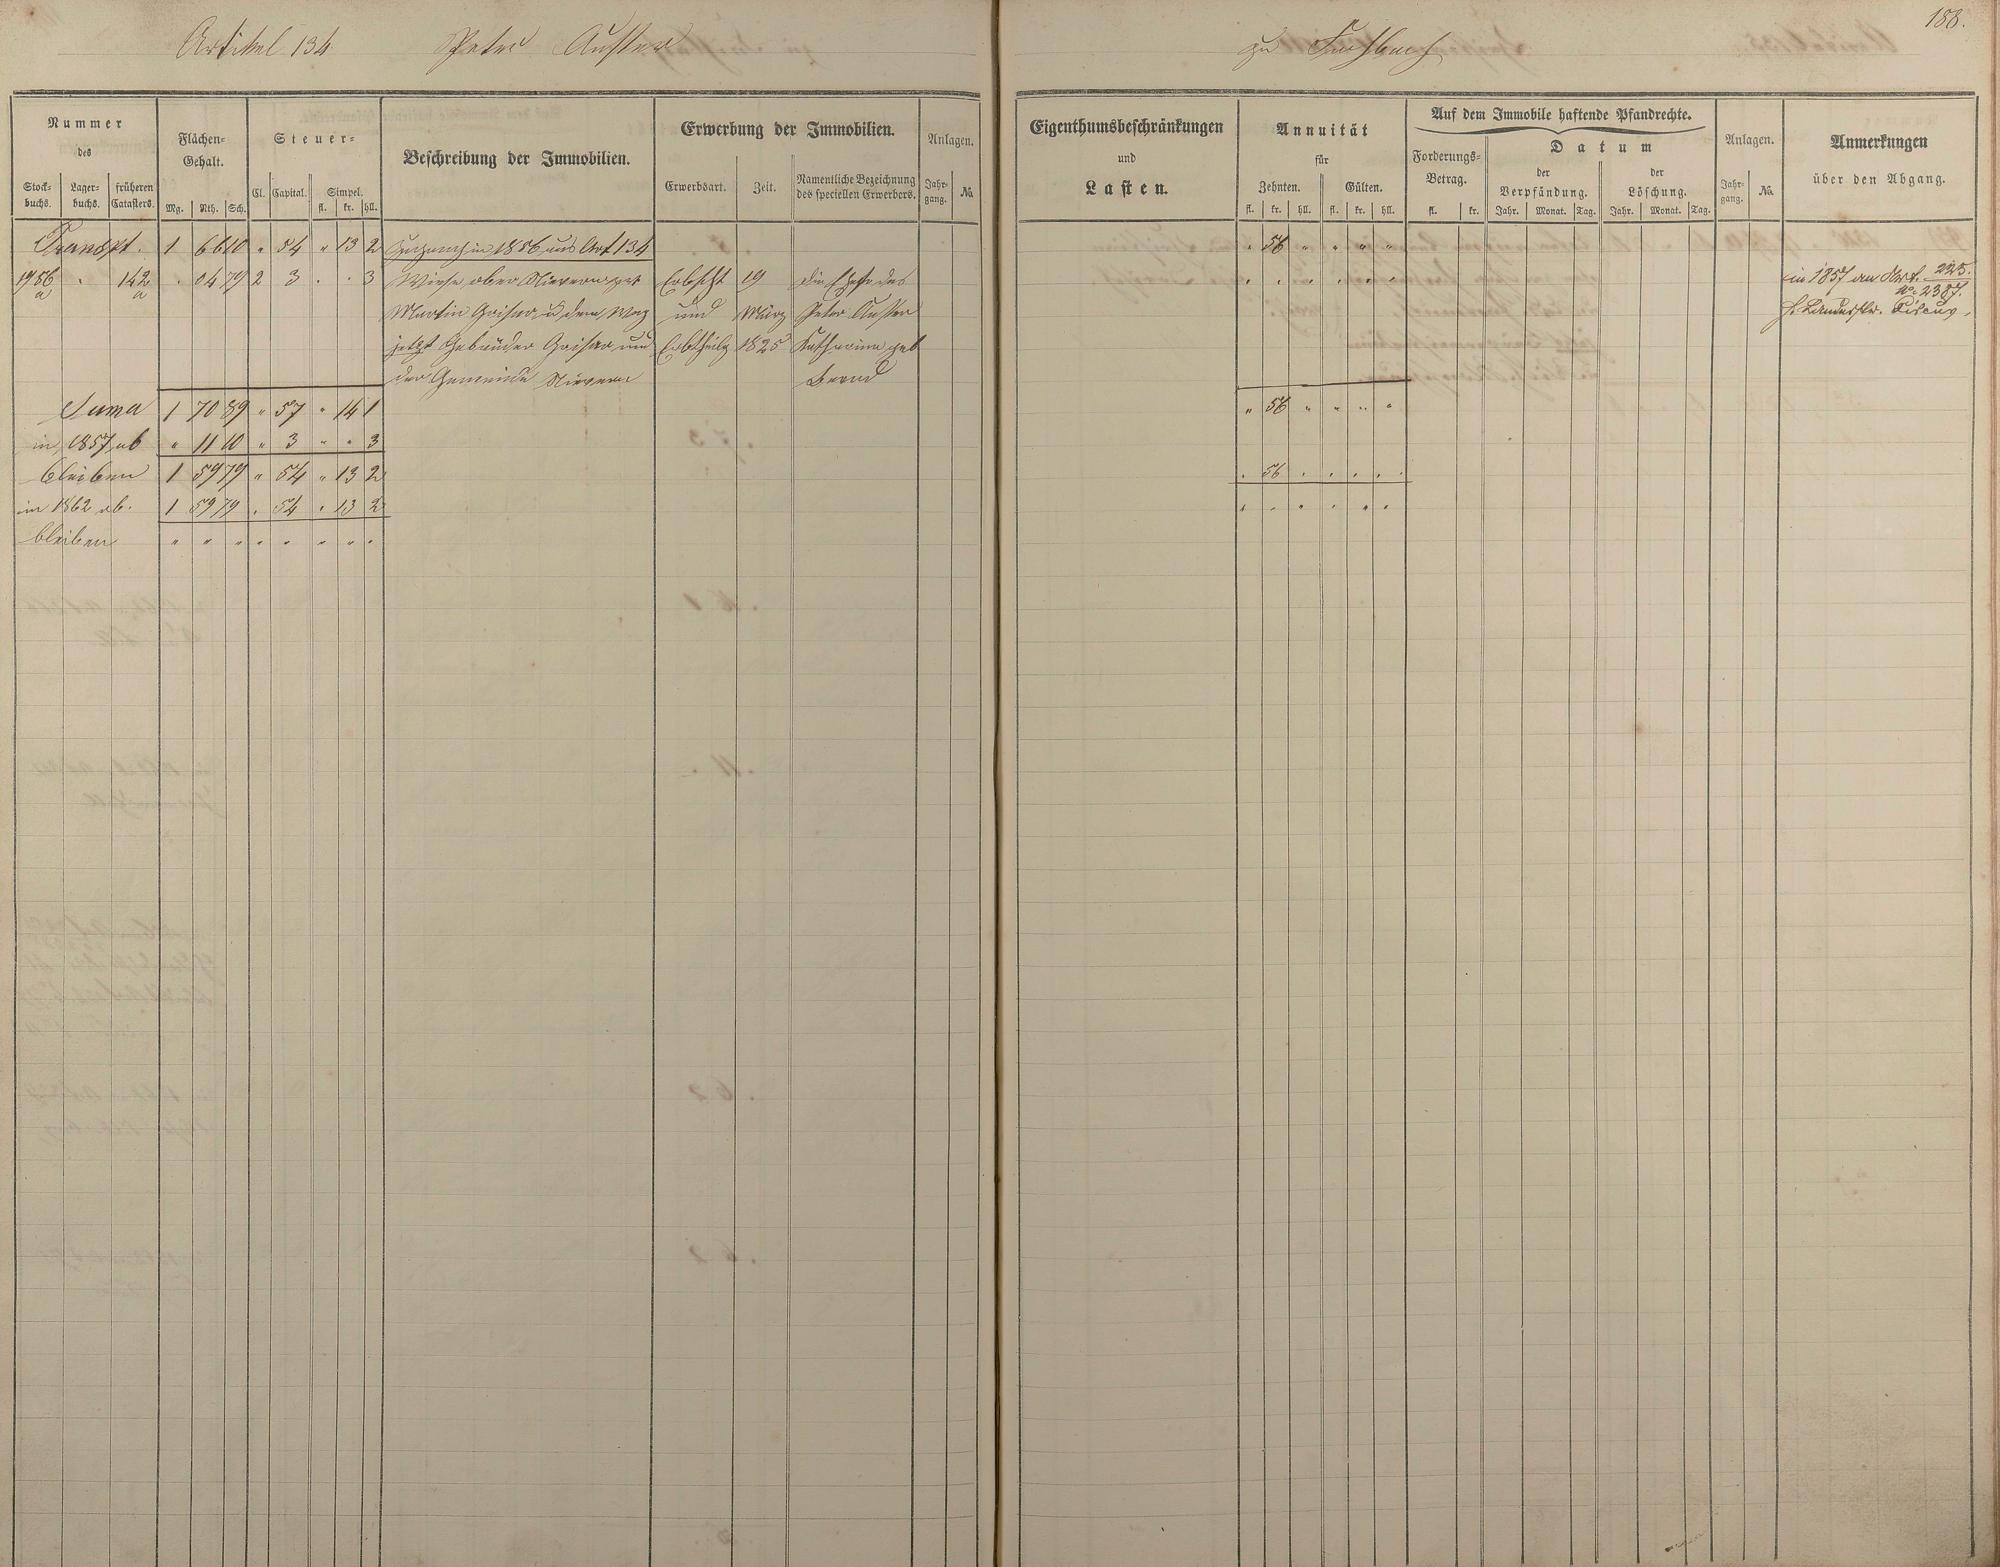 188.
Artikel 134 Peter Auster zu Fachbach
Nummer des
Stockbuchs. Lagerbuchs. früheren Catasters.
Flächen-Gehalt.
Mg. Rth. Sch.
Steuer-
Cl. Capital. Simpel.
fl. kr. hll.
Beschreibung der Immobilien.
Erwerbung der Immobilien.
Erwerbsart. Zeit. Namentliche Bezeichnung des speciellen Erwerbers.
Anlagen.
Jahrgang. No.
Eigenthumsbeschränkungen
und
Lasten.
Annuität
für
Zehnten. Gülten.
fl. kr. hll. fl. kr. hll.
Auf dem Immobile haftende Pfandrechte.
Forderungs-Betrag.
fl. kr.
Datum
der Verpfändung. der Löschung.
Jahr. Monat. Tag. Jahr. Monat. Tag.
Anlagen.
Jahrgang. No.
Anmerkungen
über den Abgang.
Transpt. 1 66 10 " 54 " 13 2 in 1856 aus Art 134 " 56 " " " "
1956 a " 142 a " 04 79 2 3 " " 3 Wiese ober Nievern zwt Erbscht 19 die Ehefr des in 1857 an Art. 225.
Martin Geisar u dem Weg und März Peter Auster No 2387.
jetzt Gebrüder Geisar und Erbtheilg 1825 Katharina geb
der Gemeinde Nievern Bernd
Suma 1 70 89 " 57 " 14 1 " 56 " " " "
in 1857 ab " 11 10 " 3 " " 3
bleiben 1 59 79 " 54 " 13 2 " 56 " " " "
in 1862 ab. 1 59 79 " 54 " 13 2 " " " " " "
bleiben " " " " " " " "